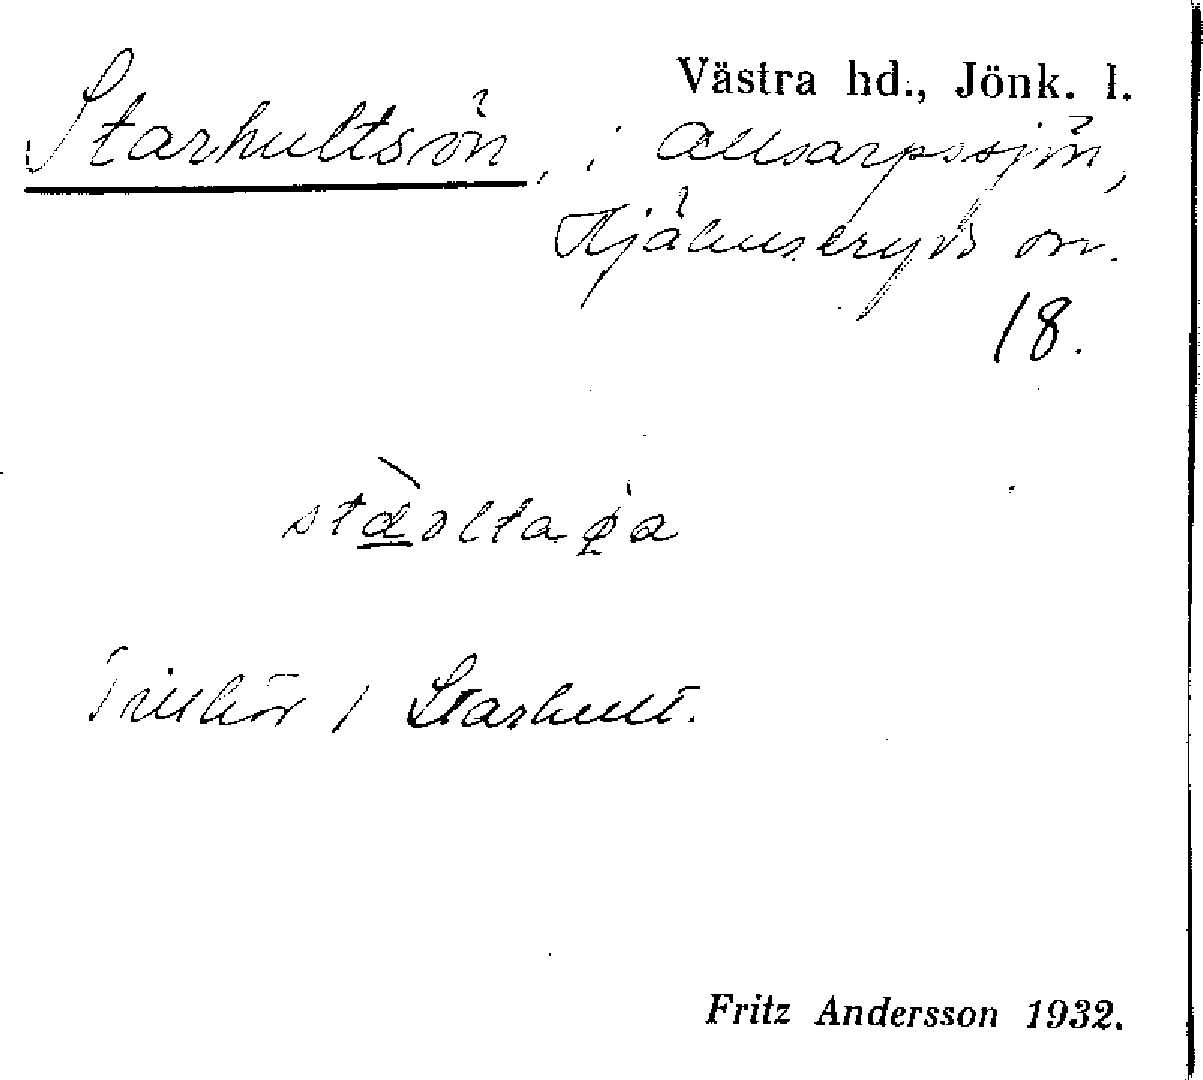 Västra hd., Jönk. l.
Starhultsön, i Allsarpssjön,
Hjälmseryds sn.
18.
Tillhör 1 Starhult.
Fritz Andersson 1932.